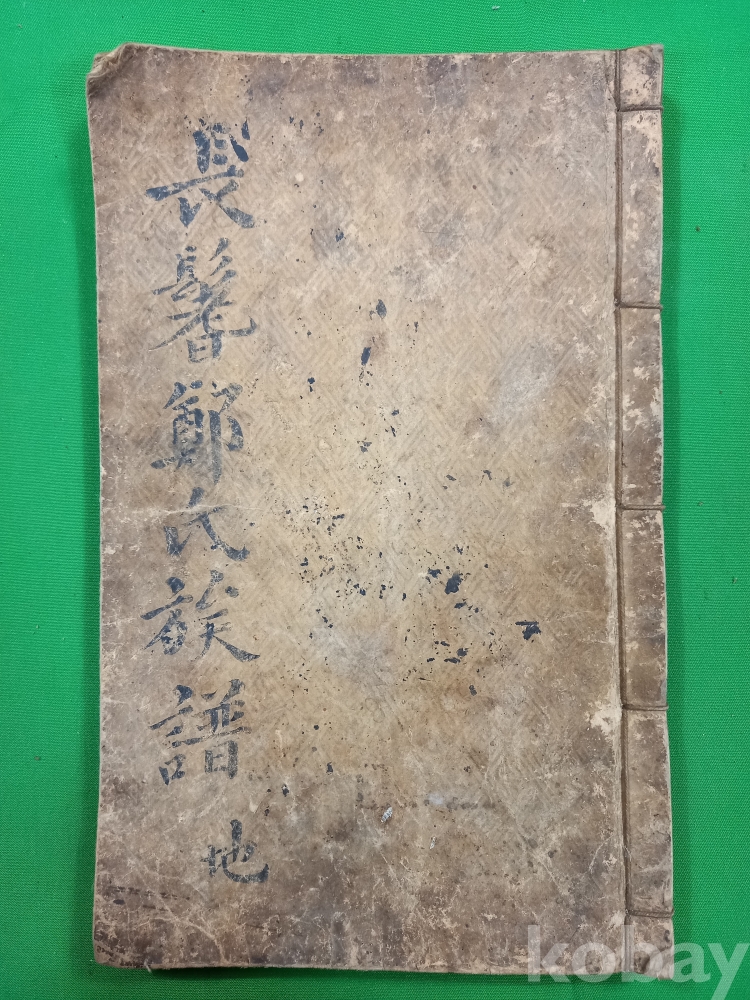 長鬐鄭氏族譜 地
kobay